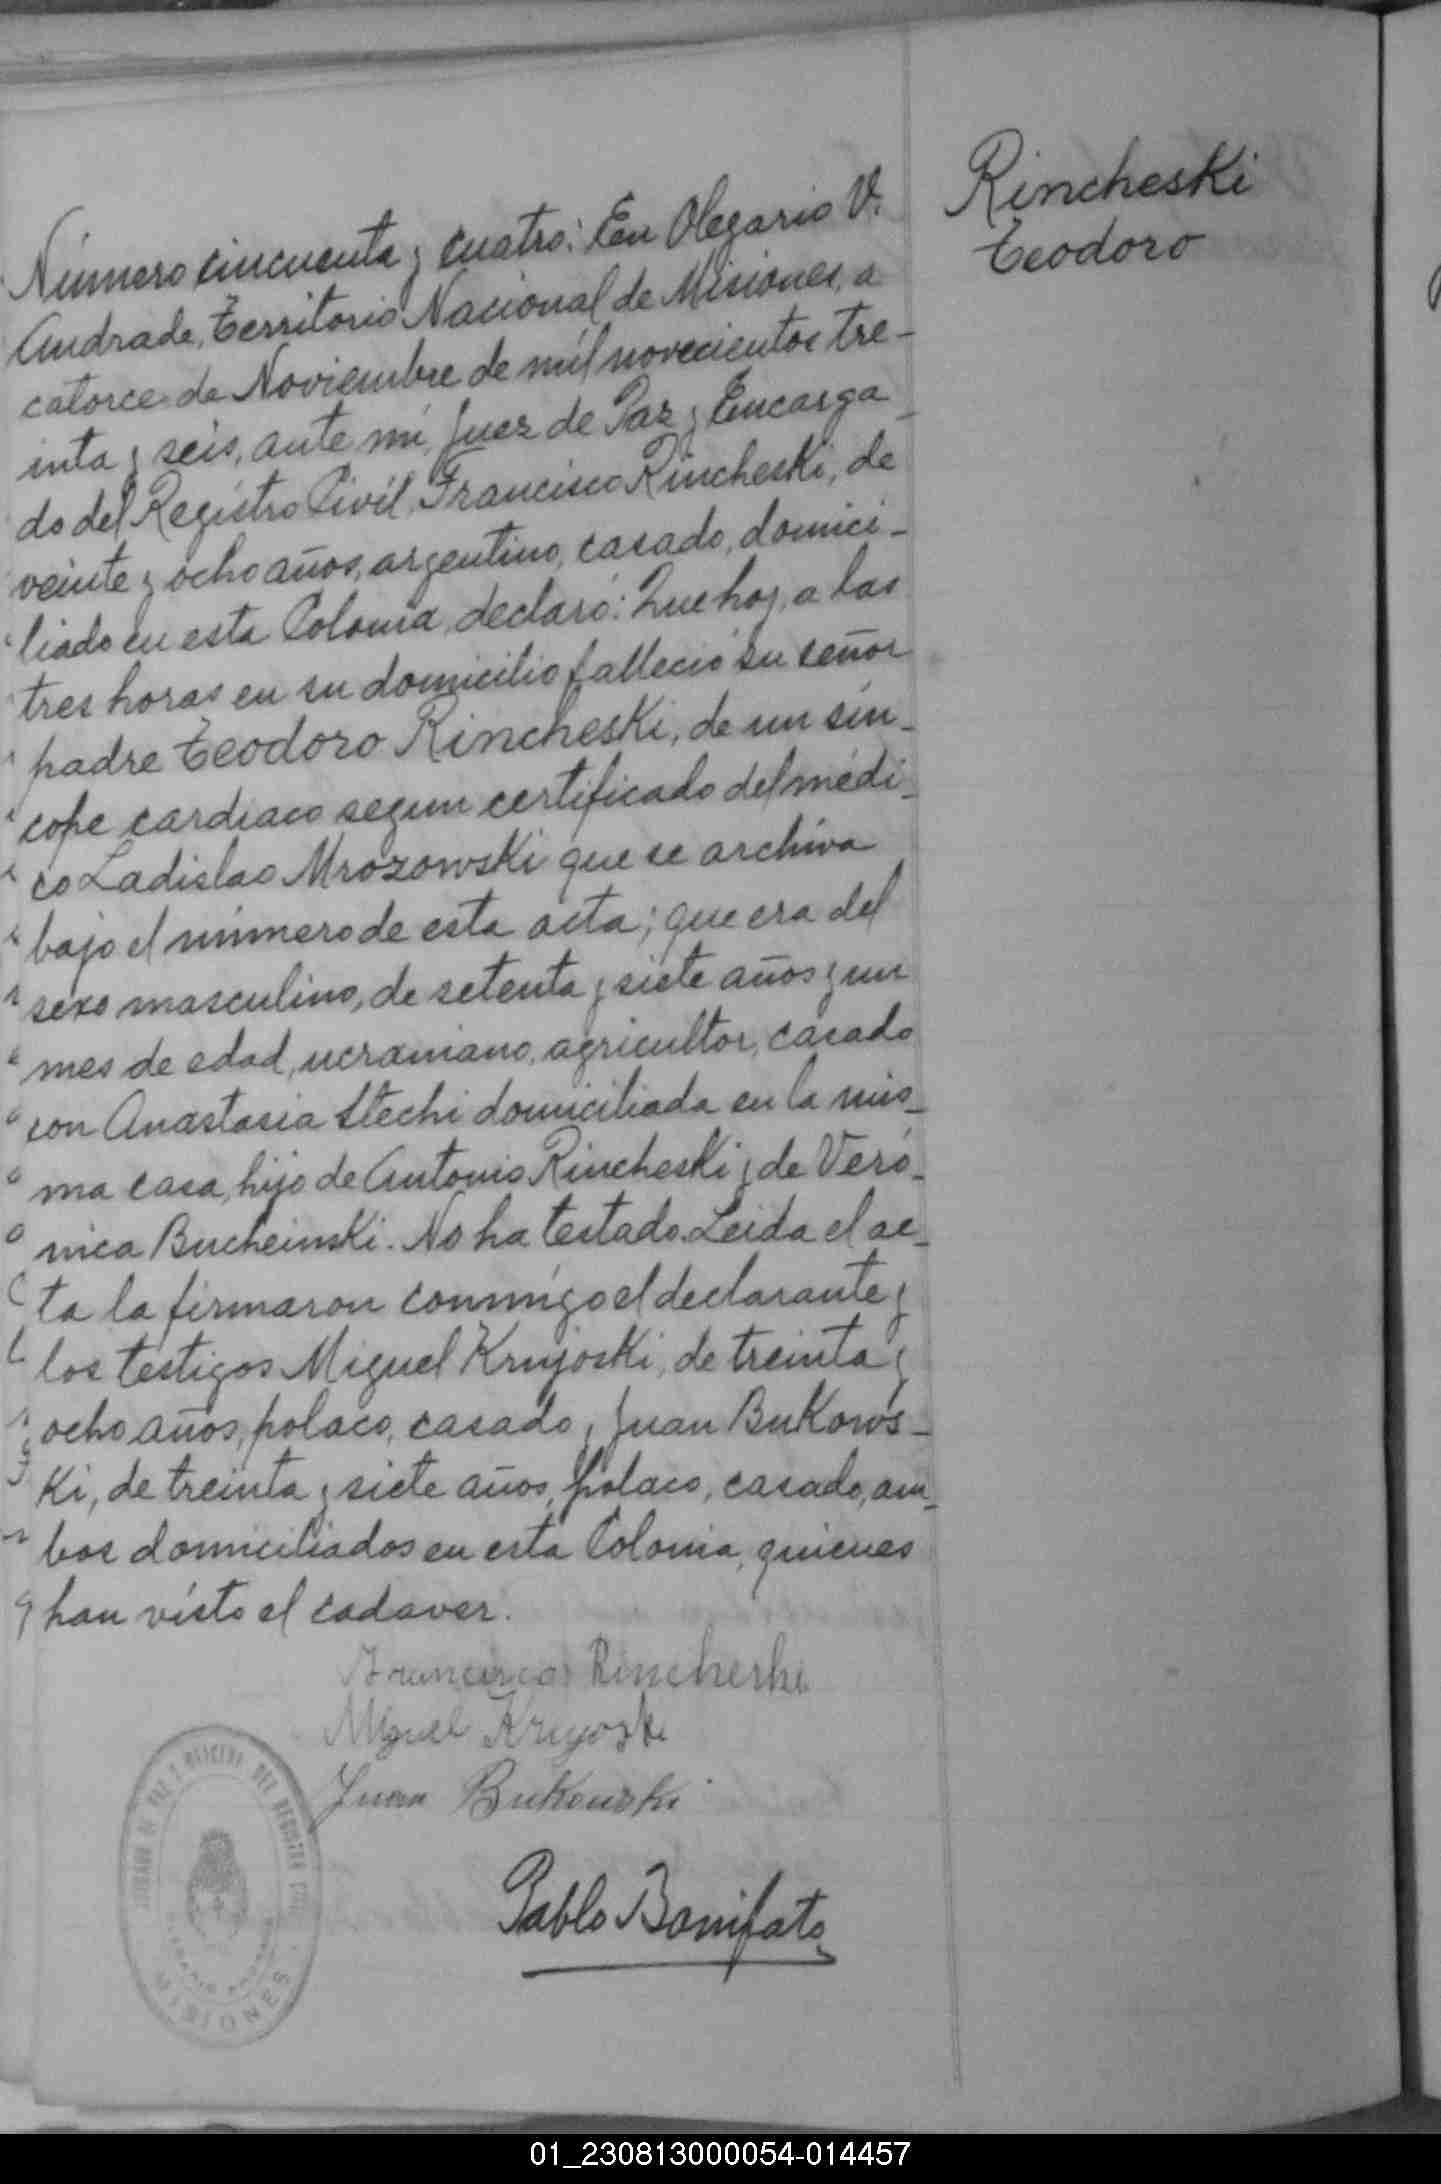 Rincheski
Teodoro
Número cincuenta y cuatro: En Olegario V.
Andrade, Territorio Nacional de Misiones, a
catorce de Noviembre de mil novecientos tre-
inta y seis, ante mí, Juez de Paz y Encarga-
do del Registro Civil, Francisco Rincheski, de
veinte y ocho años, argentino, casado, domici-
liado en esta Colonia, declaró: Que hoy, a las
tres horas en su domicilio falleció su señor
padre Teodoro Rincheski, de un sín-
cope cardiaco segun certificado del médi-
co Ladislao Mrozowski que se archiva
bajo el número de esta acta; que era del
sexo masculino, de setenta y siete años y un
mes de edad, ucraniano, agricultor, casado
con Anastasia Stechi domiciliada en la mis-
ma casa, hijo de Antonio Rincheski y de Veró-
nica Bucheinski. No ha testado. Leida el ac-
ta la firmaron conmigo el declarante y
los testigos Miguel Krujoski, de treinta y
ocho años, polaco, casado y Juan Bukows-
ki, de treinta y siete años, polaco, casado, am-
bos domiciliados en esta Colonia, quienes
han visto el cadaver.
Francisco Rincheski
Miguel Krujoski
Juan Bukowski
Pablo Bonifato
JUZGADO DE PAZ Y OFICINA DEL REGISTRO CIVIL
OLEGARIO ANDRADE
MISIONES
01_230813000054-014457